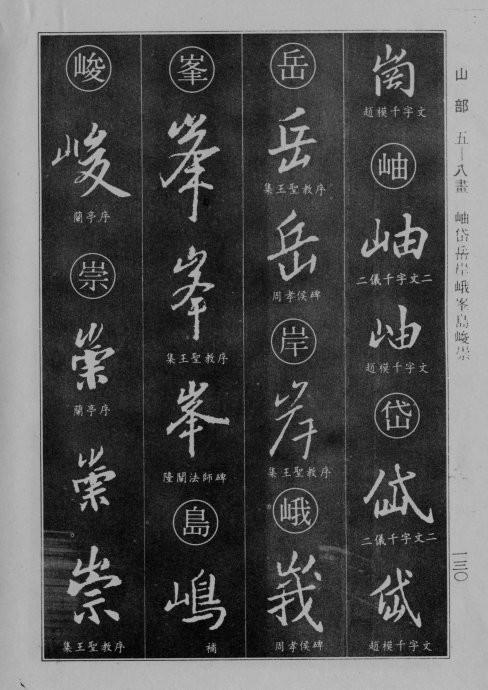 山部 五—八畫 岫岱岳岸峨峯島峻崇
一三〇
崗
趙模千字文
岫
岫
二儀千字文二
岫
趙模千字文
岱
岱
二儀千字文二
岱
趙模千字文
岳
岳
集王聖教序
岳
周孝侯碑
岸
岸
集王聖教序
峨
峩
周孝侯碑
峯
峯
峯
集王聖教序
峯
隆闡法師碑
島
嶋
補
峻
峻
蘭亭序
崇
崇
蘭亭序
崇
崇
集王聖教序